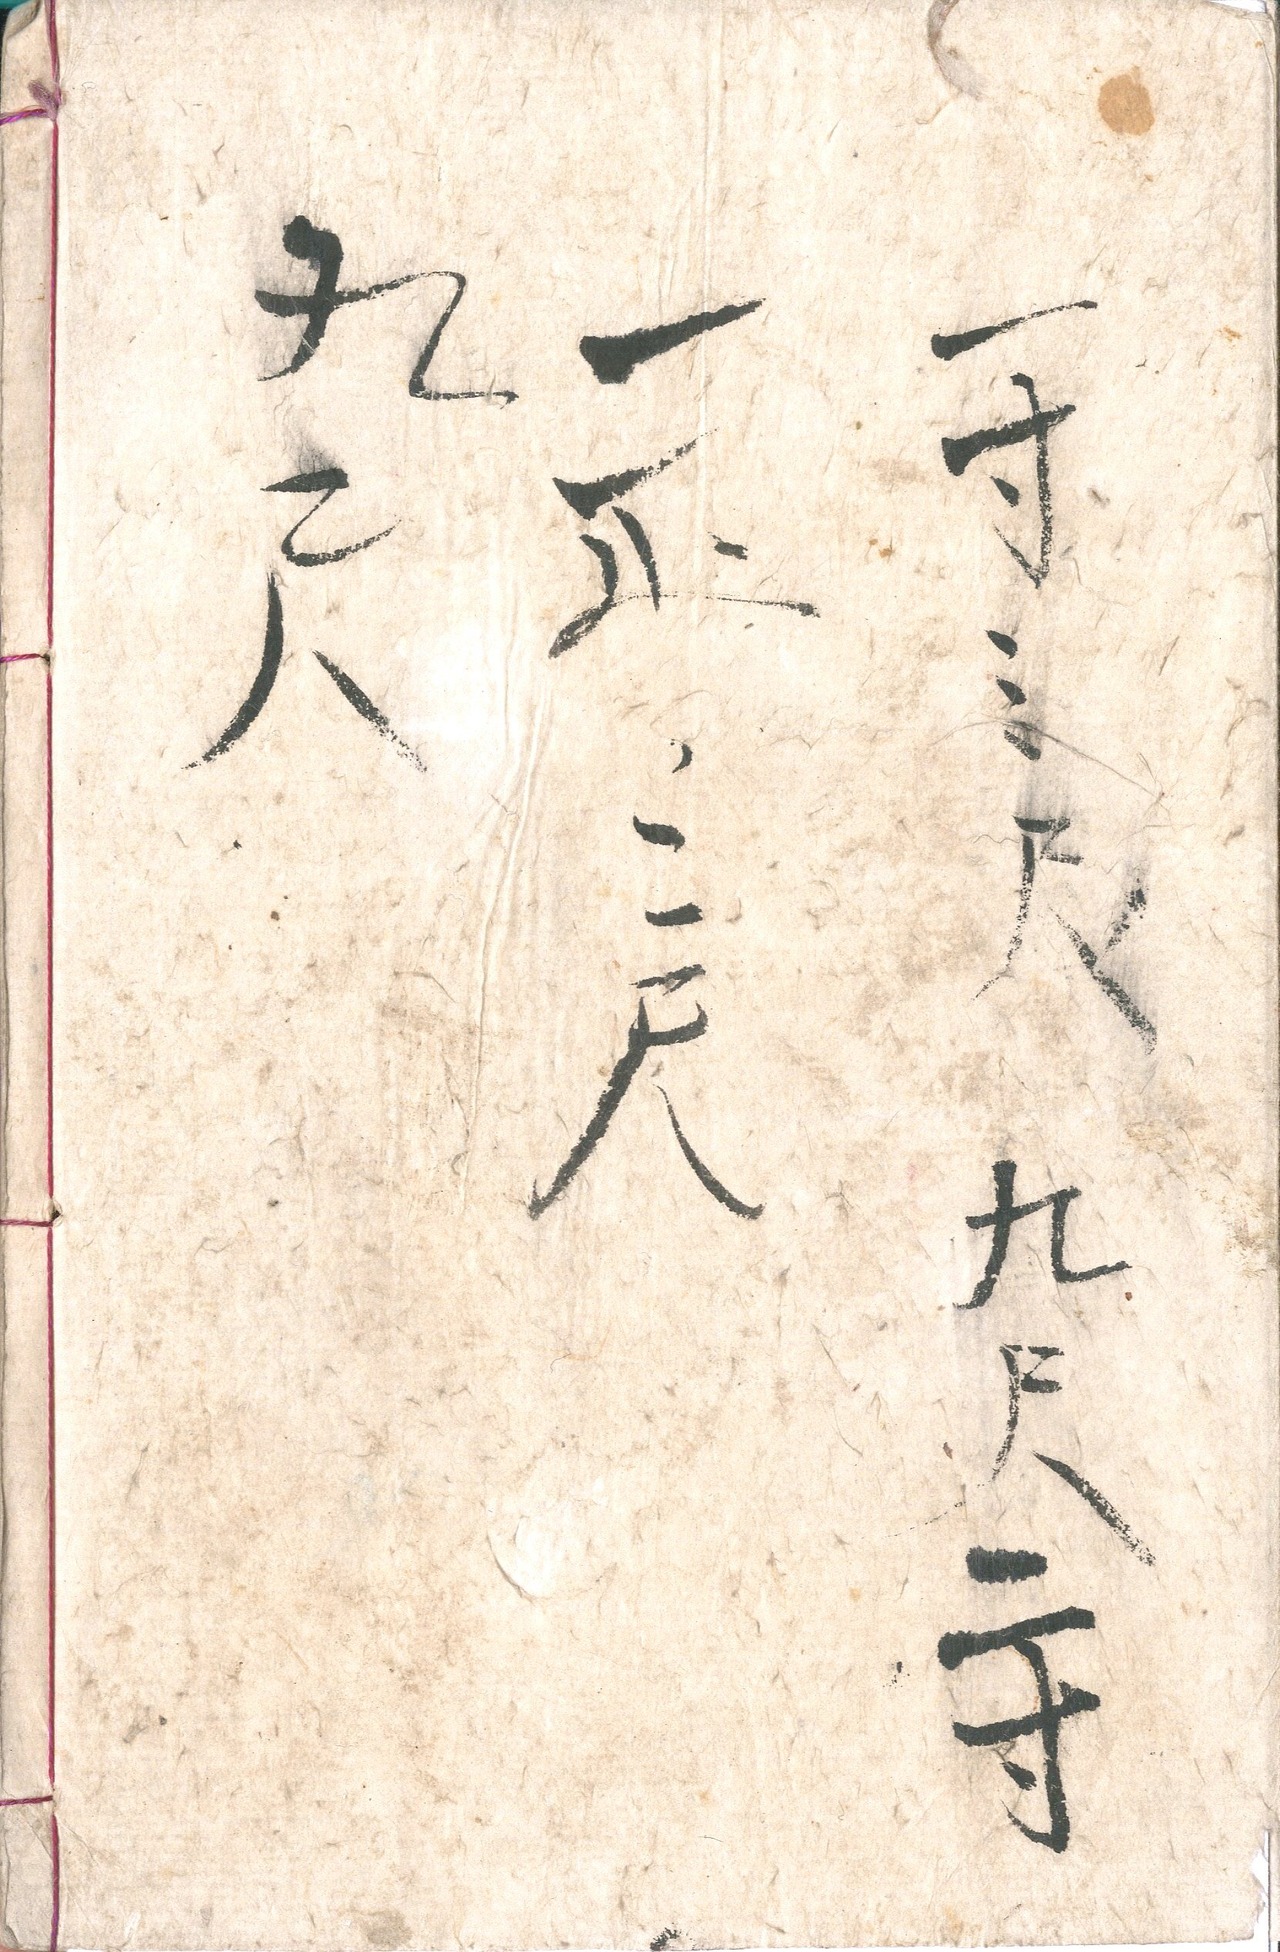 一寸三尺九尺二寸
一疋三尺
九尺